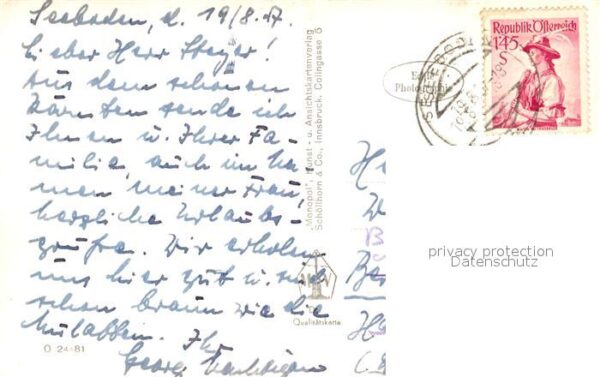 Seeboden, d. 19/8.57.
Lieber Herr Steger!
Aus dem schönen
Kärnten sende ich
Ihnen u. Ihrer Fa-
milie, auch im Na-
men meiner Frau,
herzliche Urlaubs-
grüße. Wir erholen
uns hier gut u. sind
schon braun wie die
Mulatten. Ihr
Georg
O 24481
"Monopol", Kunst- u. Ansichtskartenverlag
Schöllhorn & Co., Innsbruck, Colingasse 5
Qualitätskarte
Echte
Photographie
Republik Österreich
1.45
S
privacy protection
Datenschutz